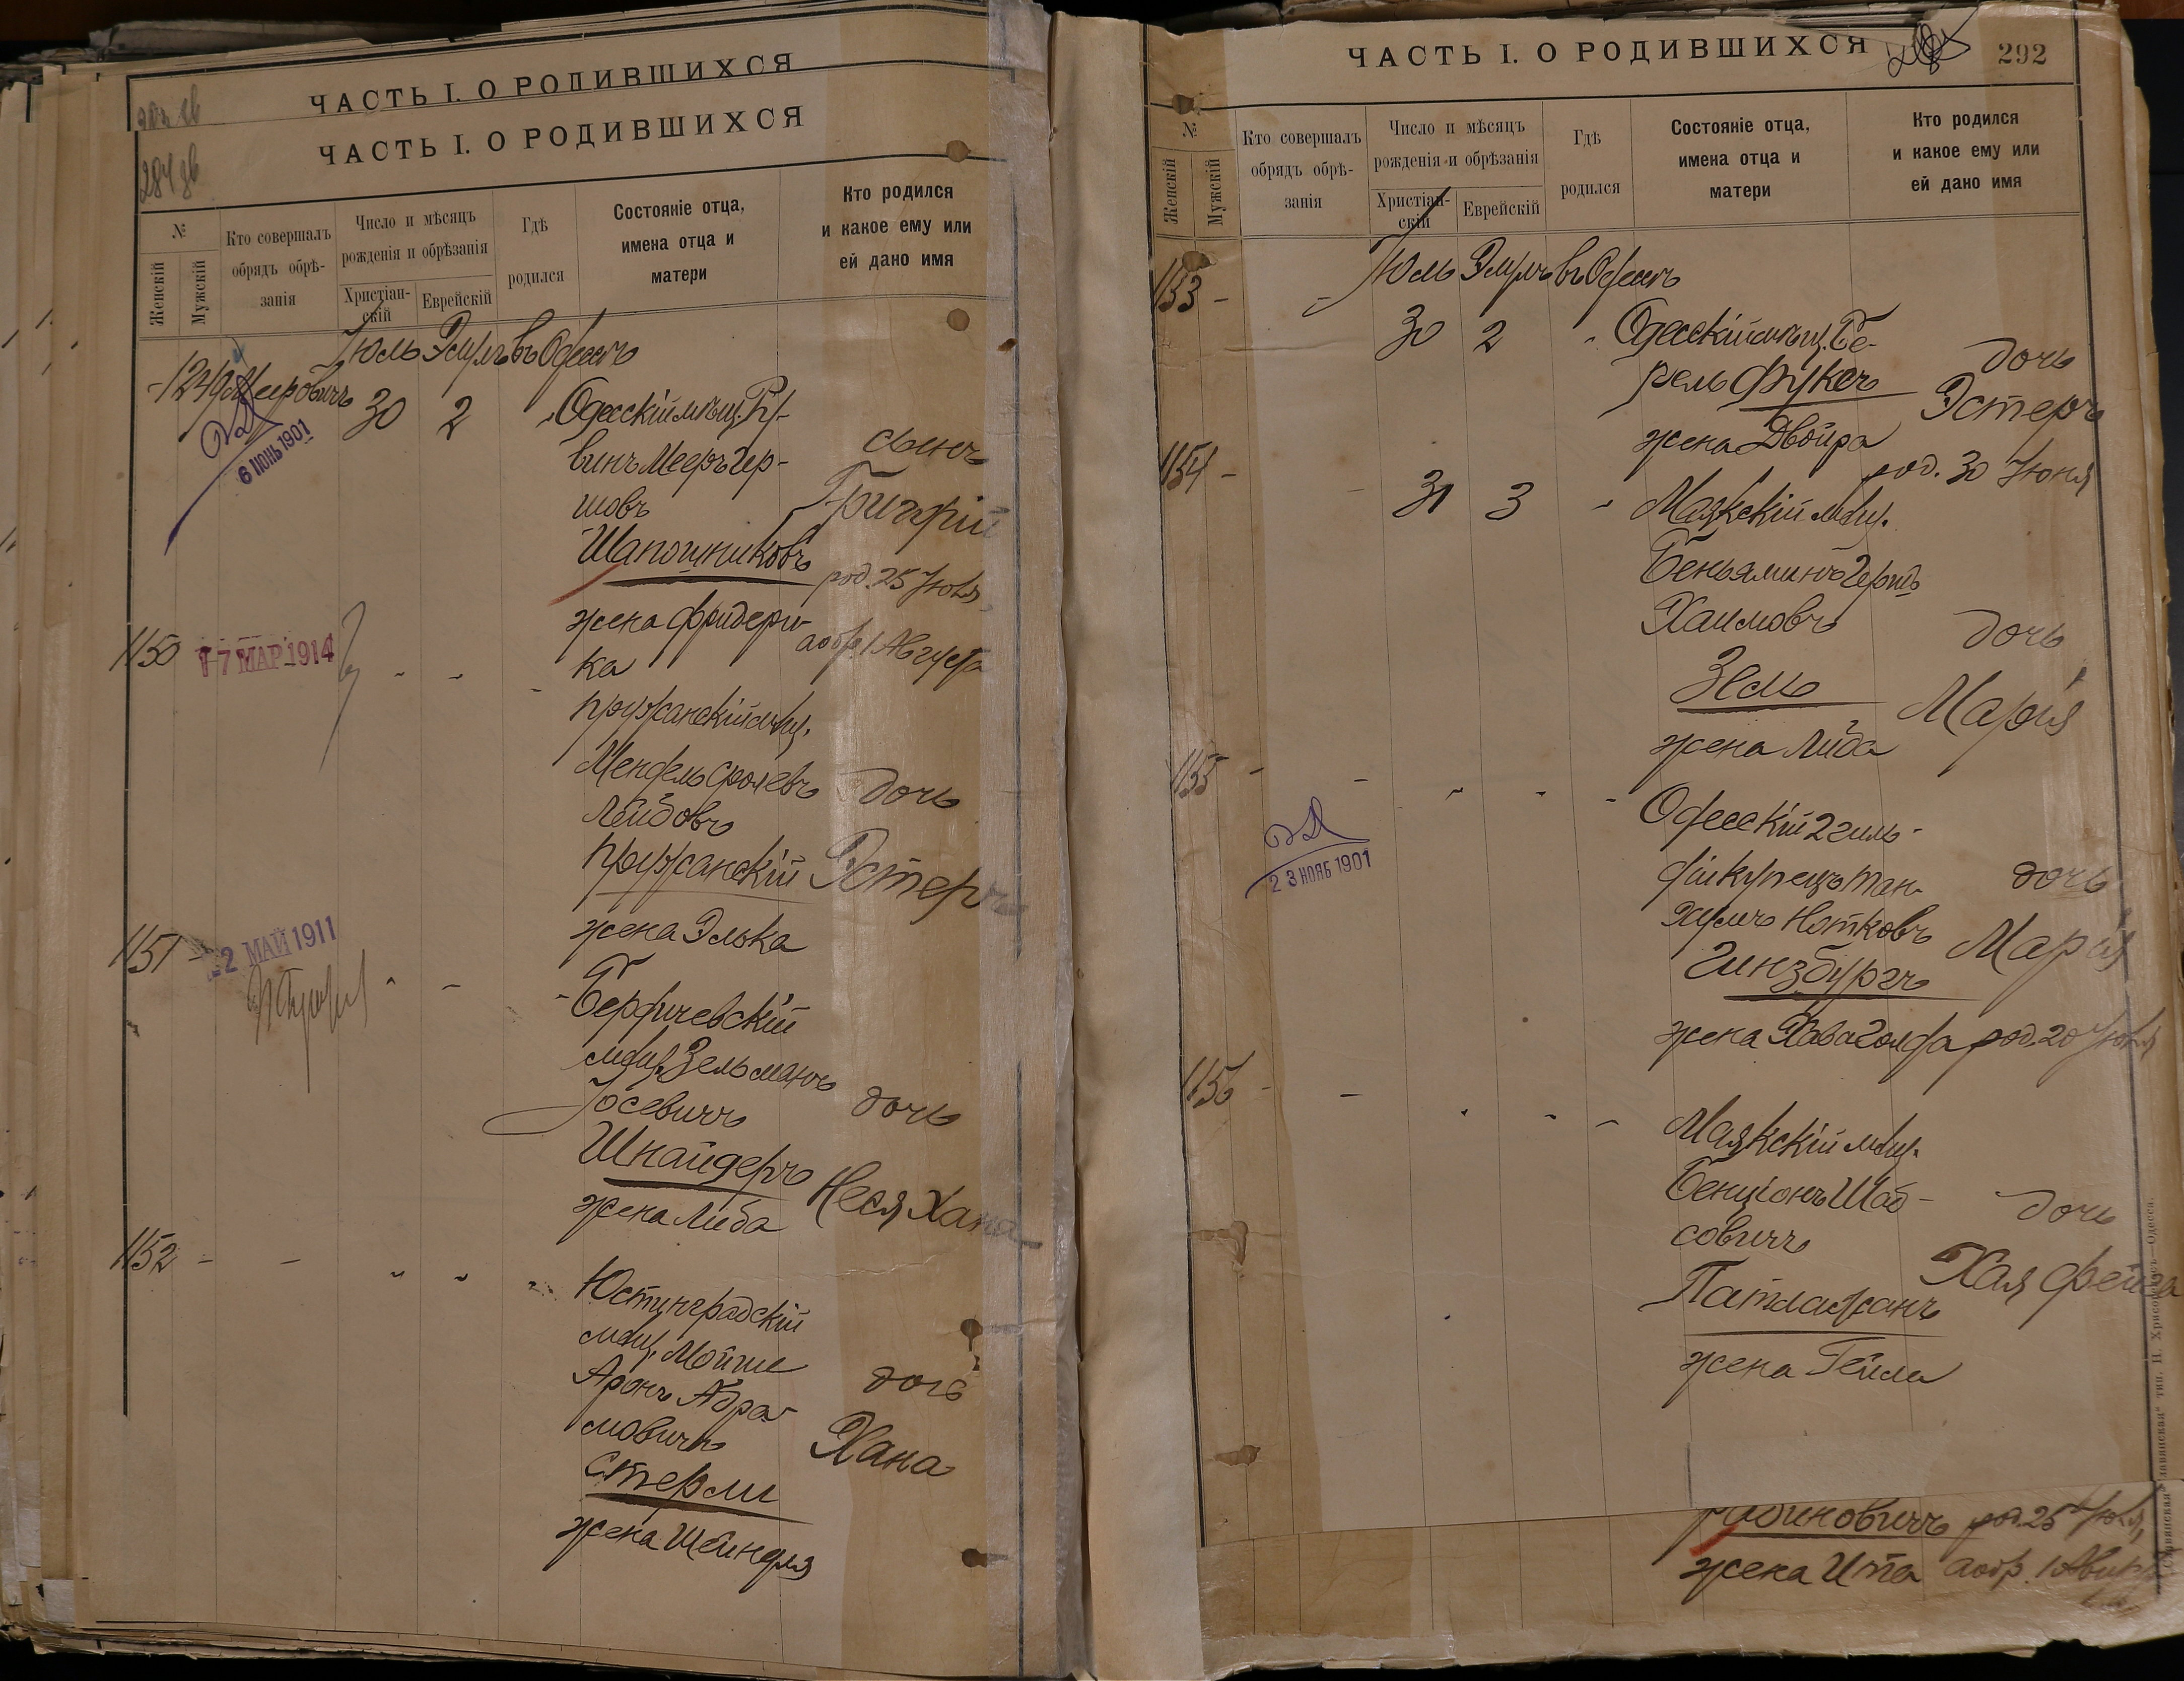 ЧАСТЬ I. О РОДИВШИХСЯ
ЧАСТЬ I. О РОДИВШИХСЯ
№
Женскій
Мужскій
Кто совершалъ
обрядъ обрѣ-
занія
Число и мѣсяцъ
рожденія и обрѣзанія
Христіан-
скій
Еврейскій
Гдѣ
родился
Состояніе отца,
имена отца и
матери
Кто родился
и какое ему или
ей дано имя
Іюль Элулъ въ Одессѣ
Мееровичъ 30 2 Одесскій мѣщ. Ру-
винъ Мееръ Гер-
шовъ
Шапошниковъ
жена Фридери-
ка
сынъ
Григорій
род. 25 Іюля
а обр. 1 Августа
6 ИЮНЬ 1901
1150
17 МАР 1914
Пружанскій мѣщ.
Мендель Сролевъ
Лейбовъ
Пружанскій
жена Элька
дочь
Эстеръ
1151 -
22 МАЙ 1911
Бердичевскій
мѣщ. Зельманъ
Іосевичъ
Шнайдеръ
жена Либа
дочь
Неся Хана
1152 -
Юстинградскій
мѣщ. Мойше
Аронъ Абра-
мовичъ
Стерли
жена Шейндля
дочь
Хана
ЧАСТЬ I. О РОДИВШИХСЯ
292
№
Женскій
Мужскій
Кто совершалъ
обрядъ обрѣ-
занія
Число и мѣсяцъ
рожденія и обрѣзанія
Христіан-
скій
Еврейскій
Гдѣ
родился
Состояніе отца,
имена отца и
матери
Кто родился
и какое ему или
ей дано имя
Іюль Элулъ въ Одессѣ
1153 -
30 2 Одесскій мѣщ. Бе-
рель Фуксъ
жена Двойра
дочь
Эстеръ
род. 30 Іюня
1154 -
31 3 Маякскій мѣщ.
Беньяминъ Гершъ
Хаимовъ
Зель
жена Либа
дочь
Марія
1155 -
23 НОЯБ 1901
Одесскій 2 гиль-
діи купецъ Тан-
хумъ Нотковъ
Гинзбургъ
жена Хава Голда
дочь
Марія
род. 20 Іюля
1156 -
Маякскій мѣщ.
Бенціонъ Шаб-
совичъ
Патлажанъ
жена Гейла
дочь
Хая Фейга
Рабиновичъ род. 25 Іюля,
жена Ита а обр. 1 Авгус